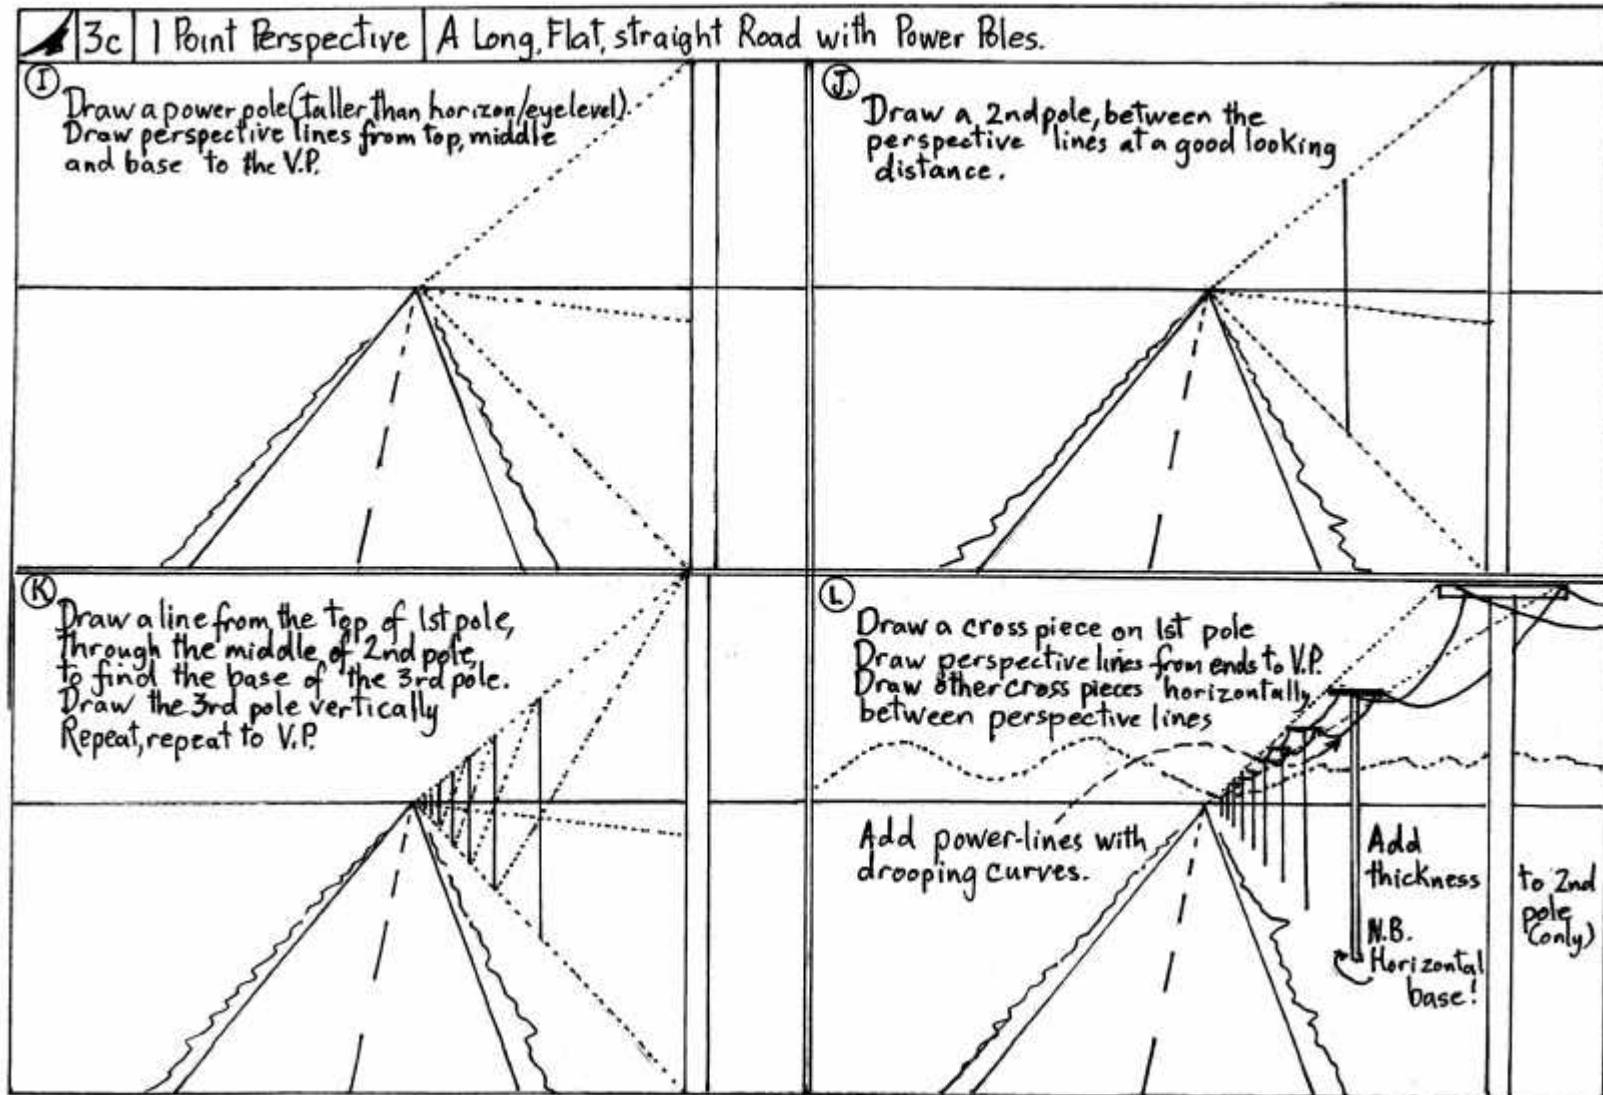 3c 1 Point Perspective A Long, Flat, straight Road with Power Poles.
I
Draw a power pole (taller than horizon/eyelevel).
Draw perspective lines from top, middle
and base to the V.P.
J.
Draw a 2nd pole, between the
perspective lines at a good looking
distance.
K
Draw a line from the top of 1st pole,
through the middle of 2nd pole,
to find the base of the 3rd pole.
Draw the 3rd pole vertically
Repeat, repeat to V.P.
L
Draw a cross piece on 1st pole
Draw perspective lines from ends to V.P.
Draw other cross pieces horizontally
between perspective lines
Add power-lines with
drooping curves.
Add
thickness
to 2nd
pole
(only)
N.B.
Horizontal
base!